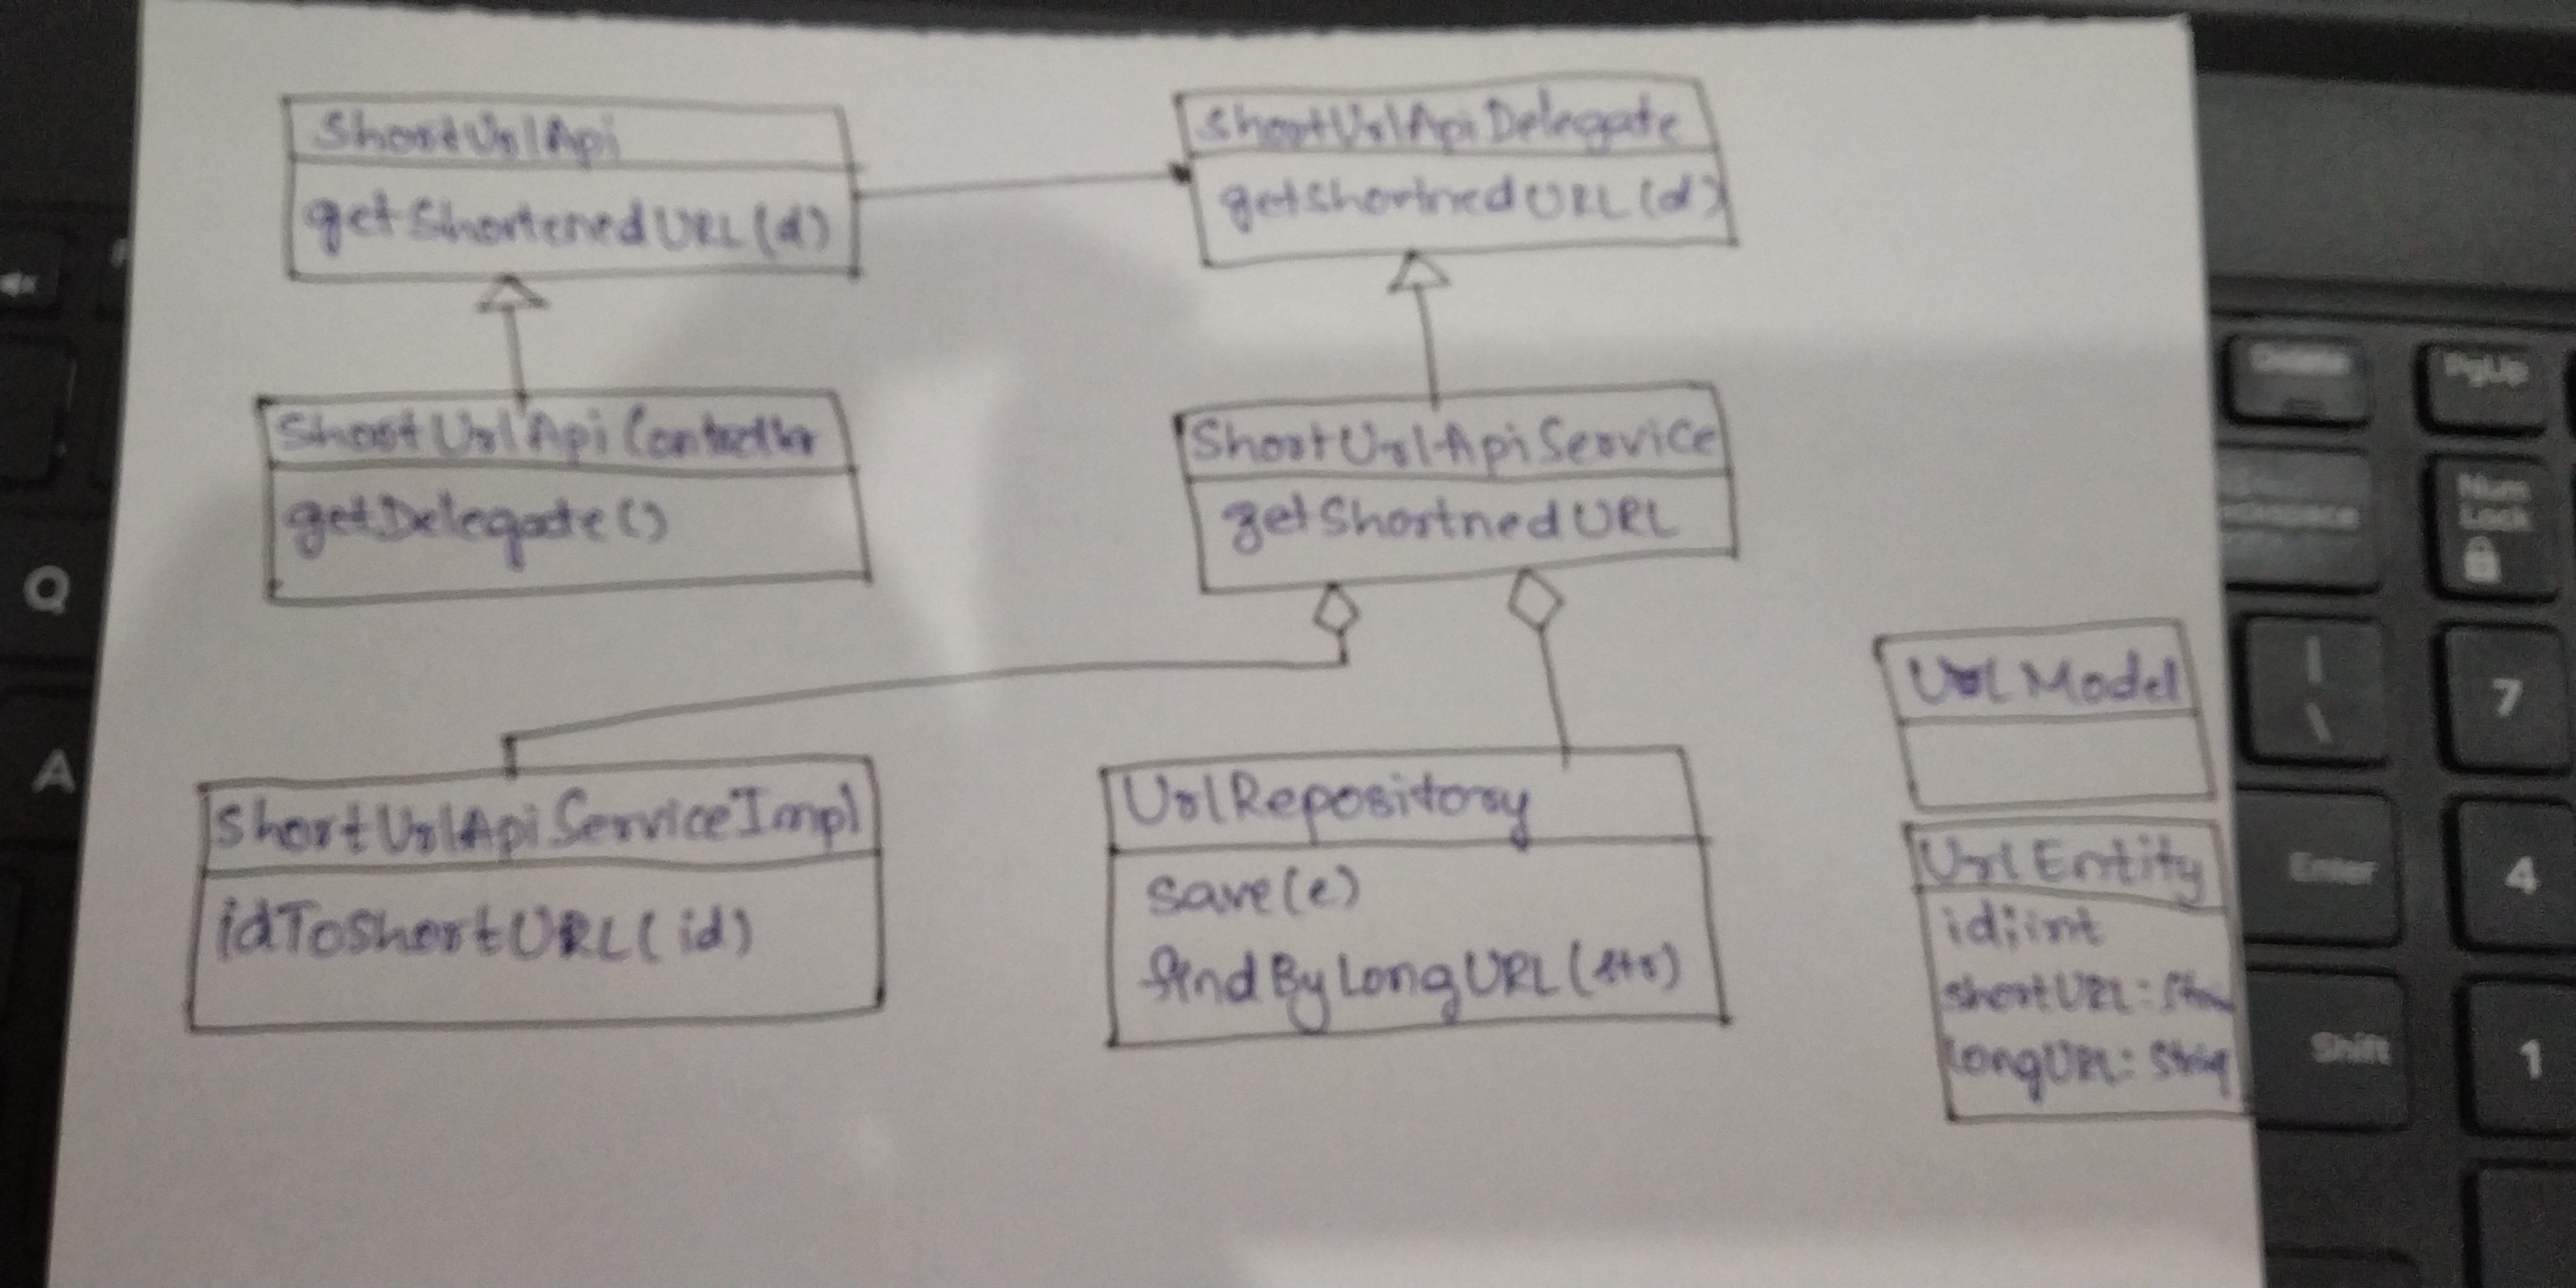 ShortUrlApi
getShortenedURL(d)
ShortUrlApiDelegate
getShortnedURL(d)
ShortUrlApiController
getDelegate()
ShortUrlApiService
getShortnedURL
ShortUrlApiServiceImpl
idToShortURL(id)
UrlRepository
save(e)
findByLongURL(str)
UrlModel
UrlEntity
id:int
shortURL:
longURL: String
Q
A
Delete
PgUp
Num
Lock
|
\
7
Enter
4
Shift
1